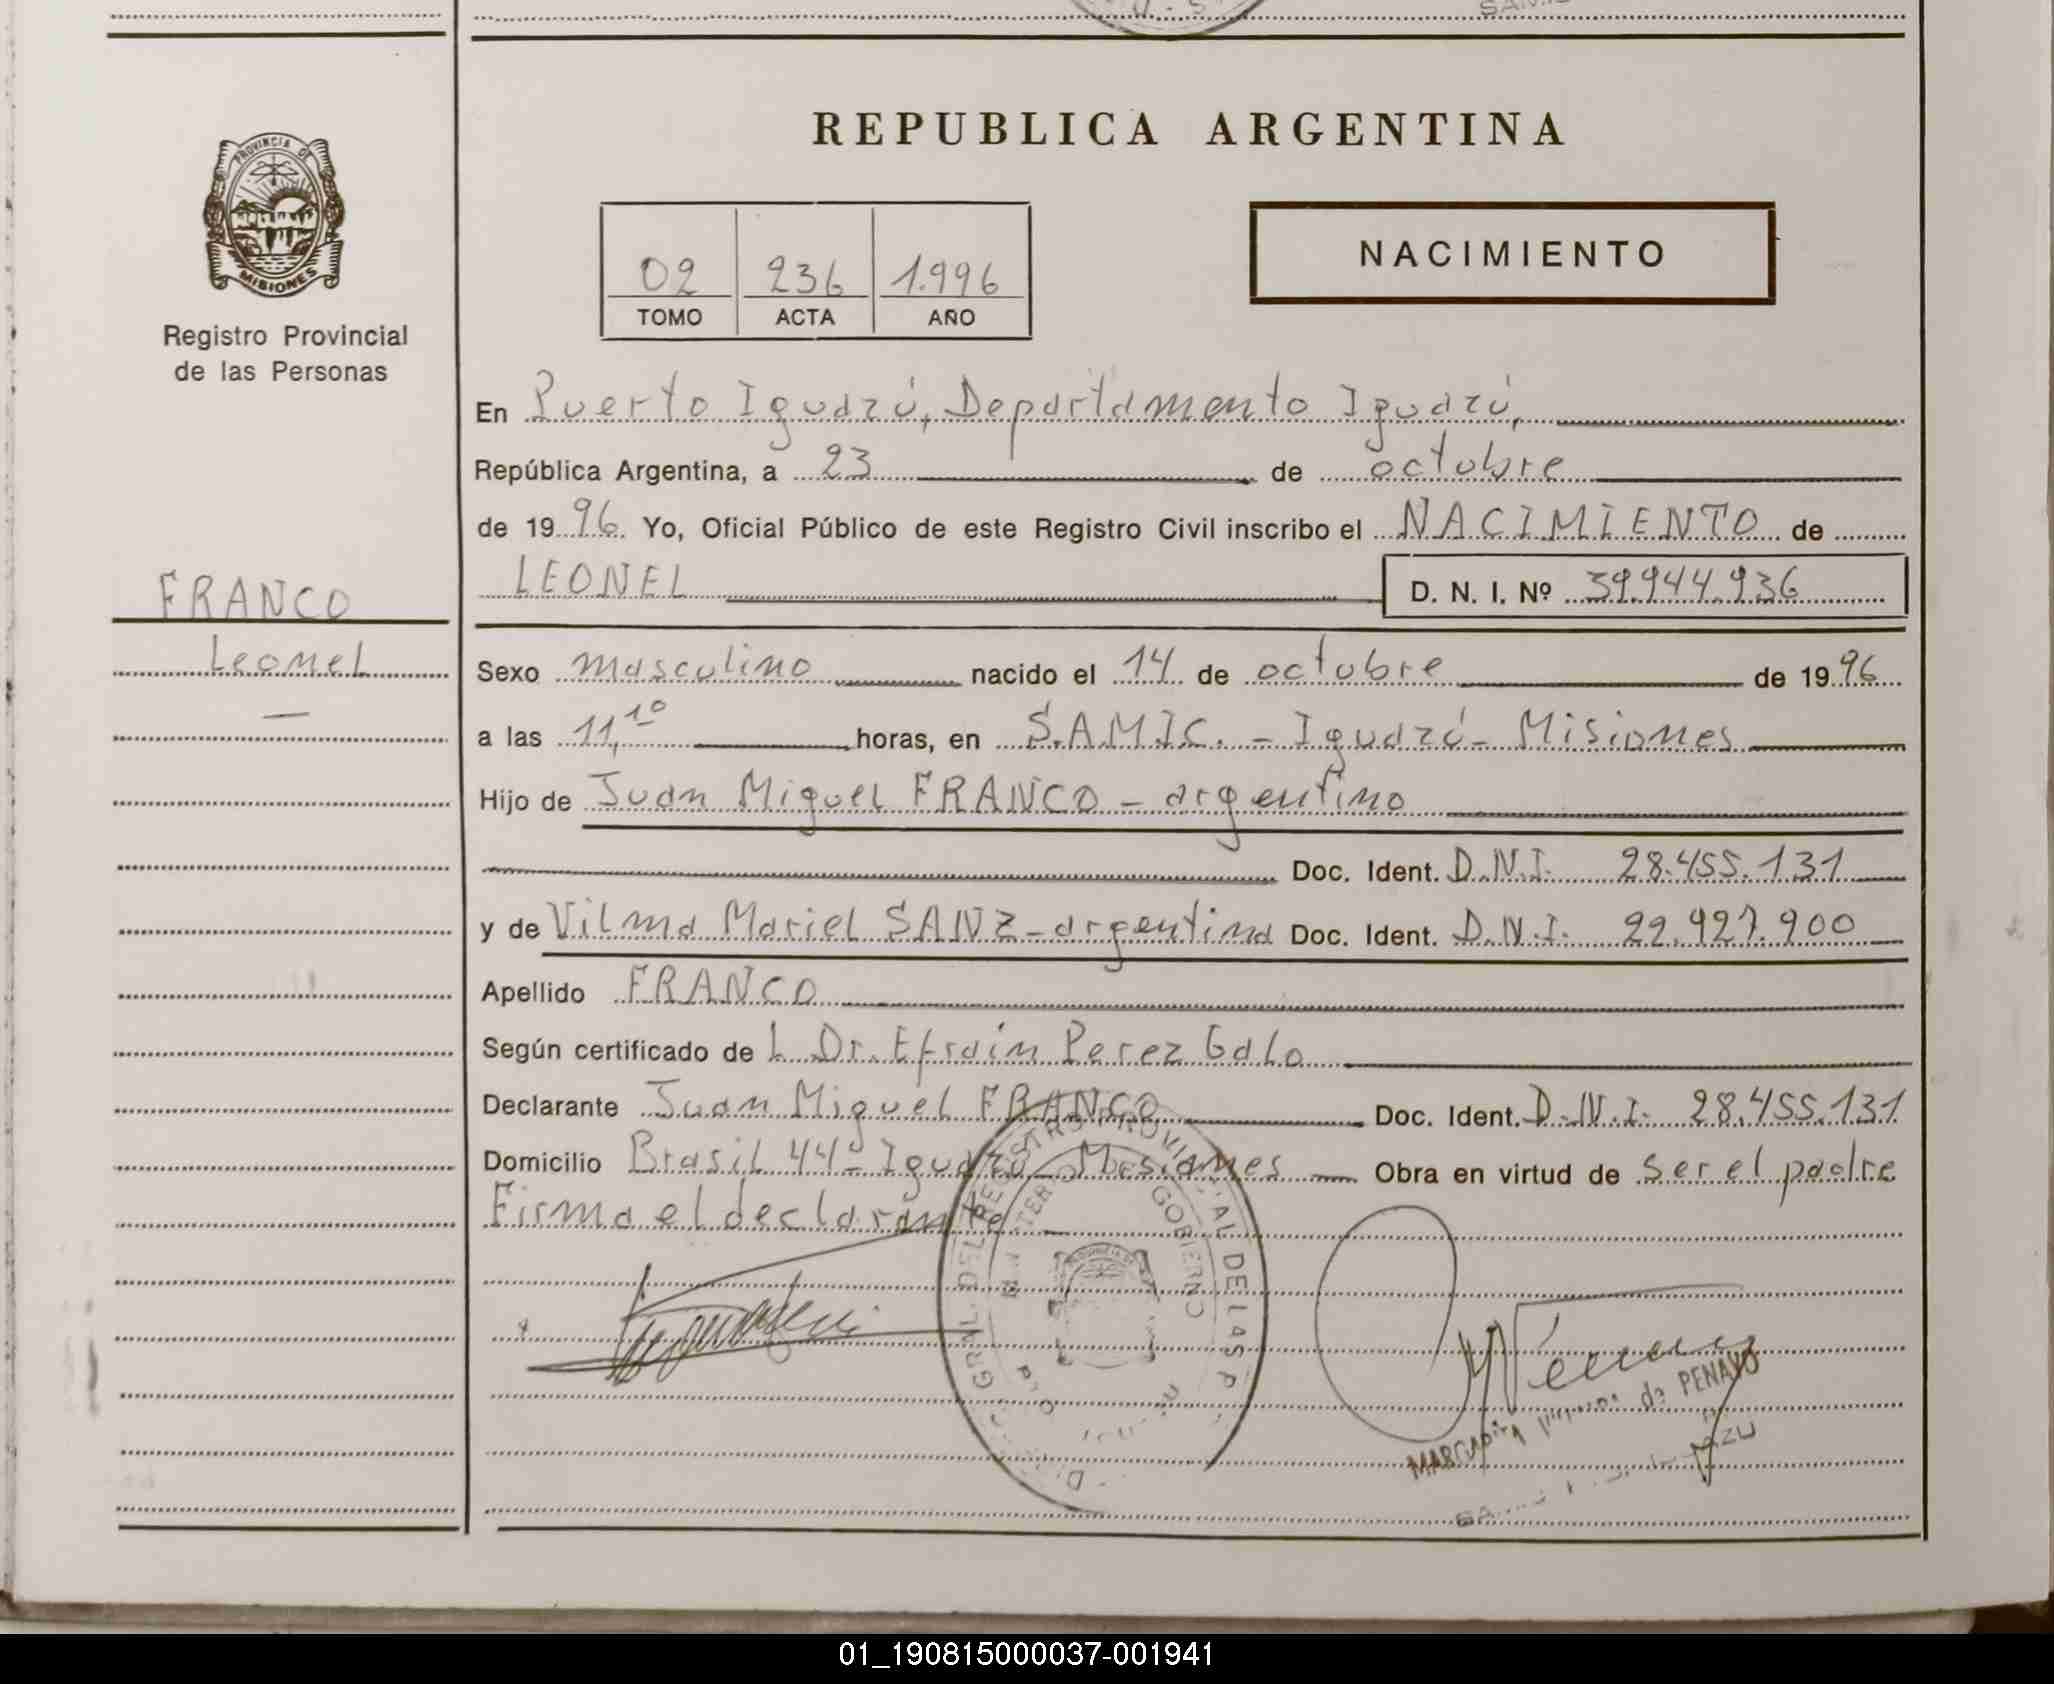 REPUBLICA ARGENTINA
PROVINCIA DE
MISIONES
Registro Provincial
de las Personas
02 236 1.996
TOMO ACTA AÑO
NACIMIENTO
En Puerto Iguazú, Departamento Iguazú,
República Argentina, a 23 de octubre
de 19 96. Yo, Oficial Público de este Registro Civil inscribo el NACIMIENTO de
LEONEL D. N. I. Nº 39.944.936
FRANCO
Leonel
Sexo masculino nacido el 14 de octubre de 19 96
a las 11,10 horas, en S.A.M.I.C. - Iguazú - Misiones
Hijo de Juan Miguel FRANCO - argentino
Doc. Ident. D.N.I. 28.455.131
y de Vilma Mariel SANZ - argentina Doc. Ident. D.N.I. 22.927.900
Apellido FRANCO
Según certificado de L Dr. Efrain Perez Galo
Declarante Juan Miguel FRANCO Doc. Ident. D.N.I. 28.455.131
Domicilio Brasil 44- Iguazú - Misiones Obra en virtud de ser el padre
Firma el declarante
MINISTERIO DE GOBIERNO
MARGARITA de PENAYO
01_190815000037-001941